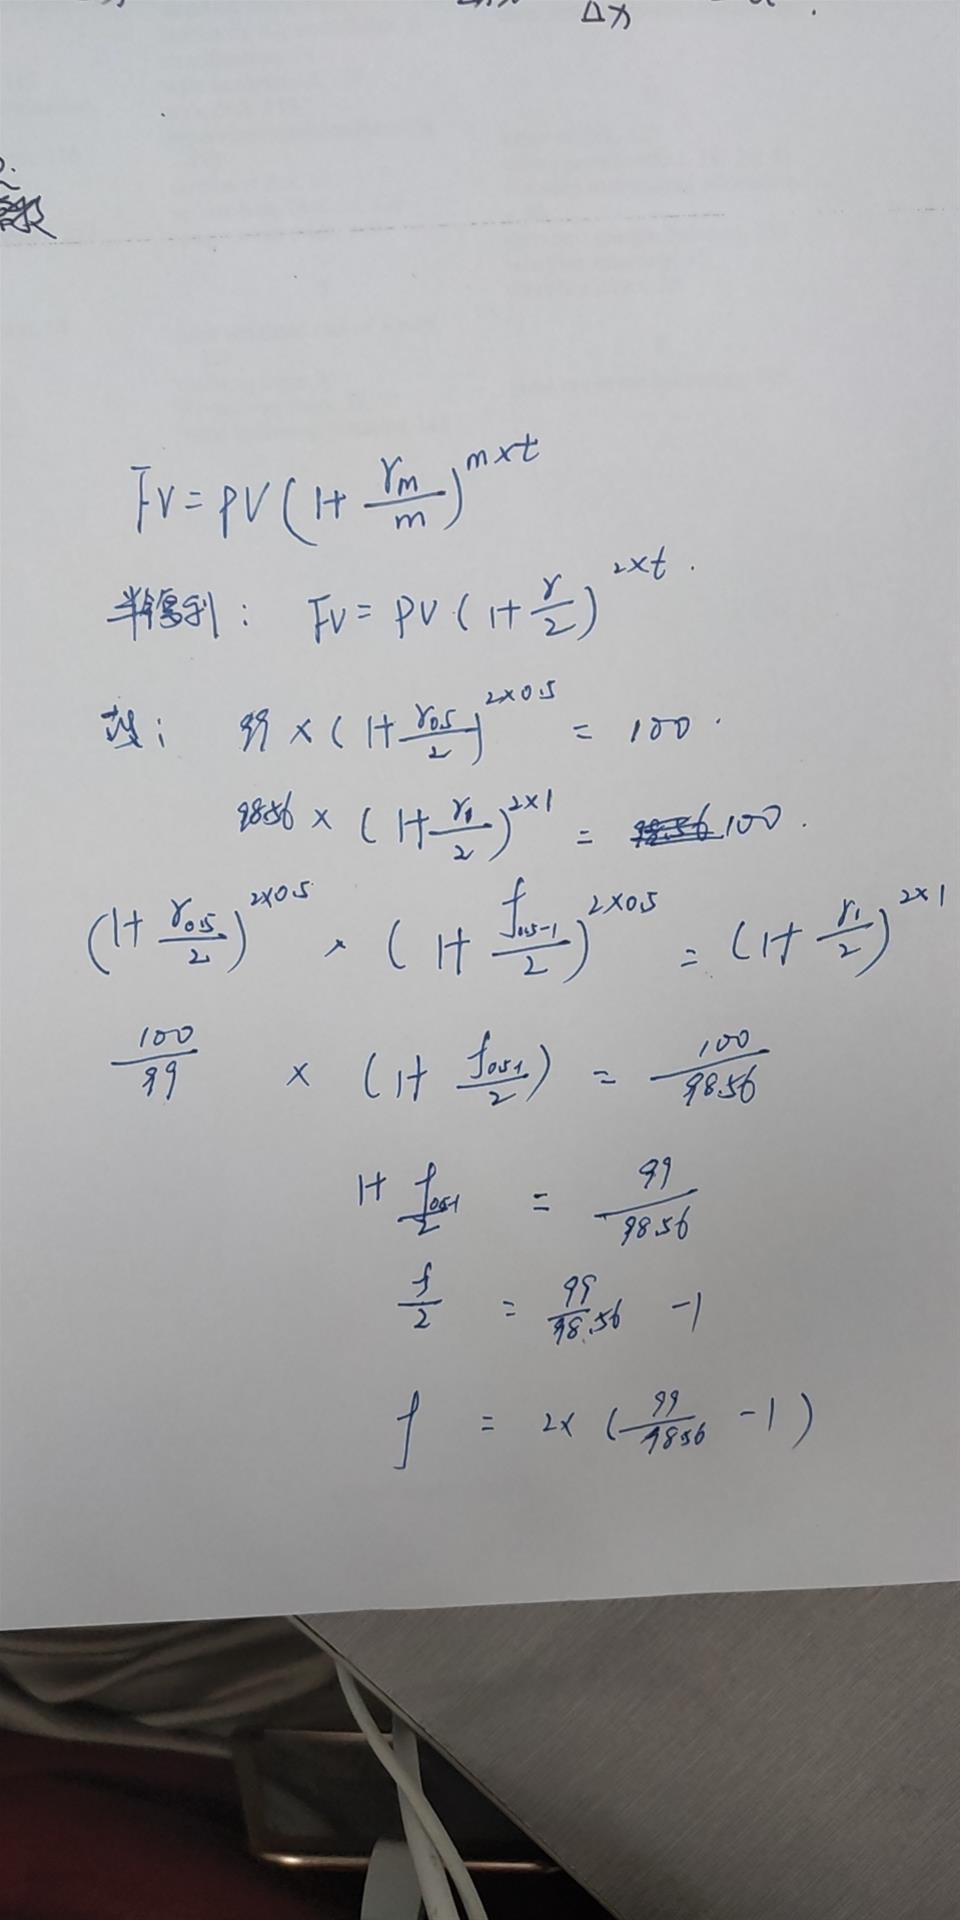 Δx
FV = PV (1 + r_m/m)^(m×t)
半年复利: FV = PV (1 + r/2)^(2×t).
故: 99 × (1 + r_0.5/2)^(2×0.5) = 100.
98.56 × (1 + r_1/2)^(2×1) = 100.
(1 + r_0.5/2)^(2×0.5) × (1 + f_0.5-1/2)^(2×0.5) = (1 + r_1/2)^(2×1)
100/99 × (1 + f_0.5-1/2) = 100/98.56
1 + f_0.5-1/2 = 99/98.56
f/2 = 99/98.56 - 1
f = 2× (99/98.56 - 1)